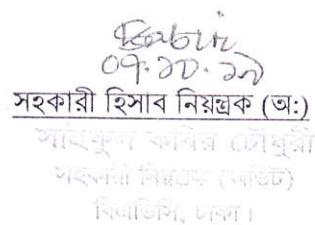 ০৭.১০.১৯
সহকারী হিসাব নিয়ন্ত্রক (অ:)
সাইফুল কবির চৌধুরী
সহকারী নিয়ন্ত্রক (অডিট)
বিএডিসি, ঢাকা।